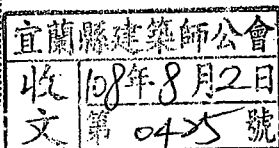 宜蘭縣建築師公會
收文
108年8月2日
第0425號